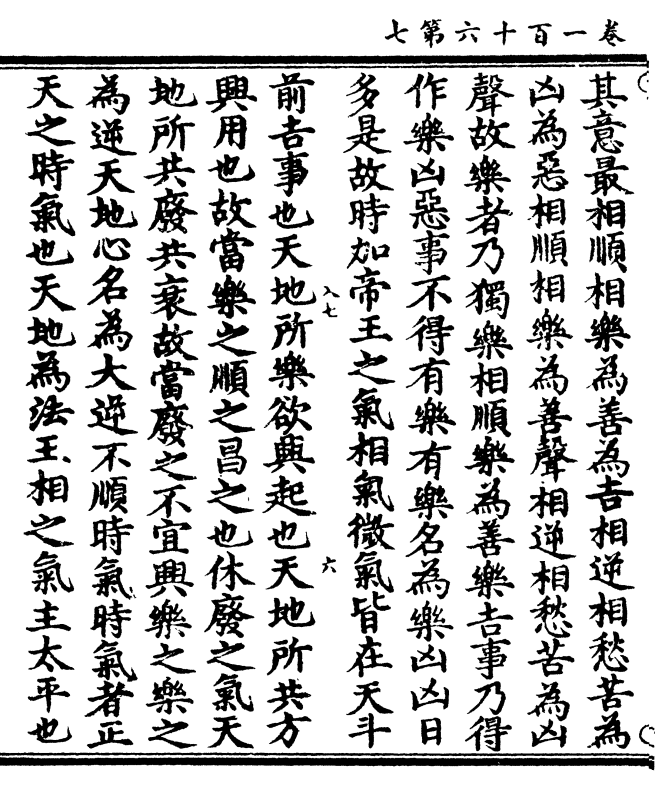 卷一百十六第七
其意最相順相樂為善為吉相逆相愁苦為
凶為惡相順相樂為善聲相逆相愁苦為凶
聲故樂者乃獨樂相順樂為善樂吉事乃得
作樂凶惡事不得有樂有樂名為樂凶凶日
多是故時加帝王之氣相氣微氣皆在天斗
前吉事也天地所樂欲興起也天地所共方
入七
六
興用也故當樂之順之昌之也休廢之氣天
地所共廢共衰故當廢之不宜興樂之樂之
為逆天地心名為大逆不順時氣時氣者正
天之時氣也天地為法王相之氣主太平也